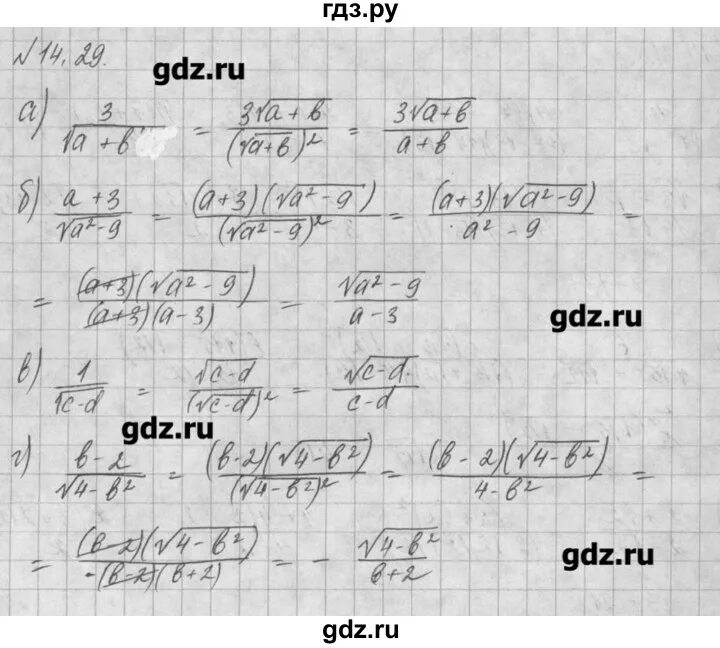 гдз.ру
№14.29.
gdz.ru
а) 3/√(a+b) = 3√(a+b)/(√(a+b))² = 3√(a+b)/(a+b)
б) (a+3)/√(a²-9) = (a+3)(√(a²-9))/(√(a²-9))² = (a+3)(√(a²-9))/(a²-9) =
= (a+3)(√(a²-9))/((a+3)(a-3)) = √(a²-9)/(a-3)
gdz.ru
в) 1/√(c-d) = √(c-d)/(√(c-d))² = √(c-d)/(c-d)
gdz.ru
г) (b-2)/√(4-b²) = (b-2)(√(4-b²))/(√(4-b²))² = (b-2)(√(4-b²))/(4-b²) =
= (b-2)(√(4-b²))/(-(b-2)(b+2)) = - √(4-b²)/(b+2)
gdz.ru
gdz.ru